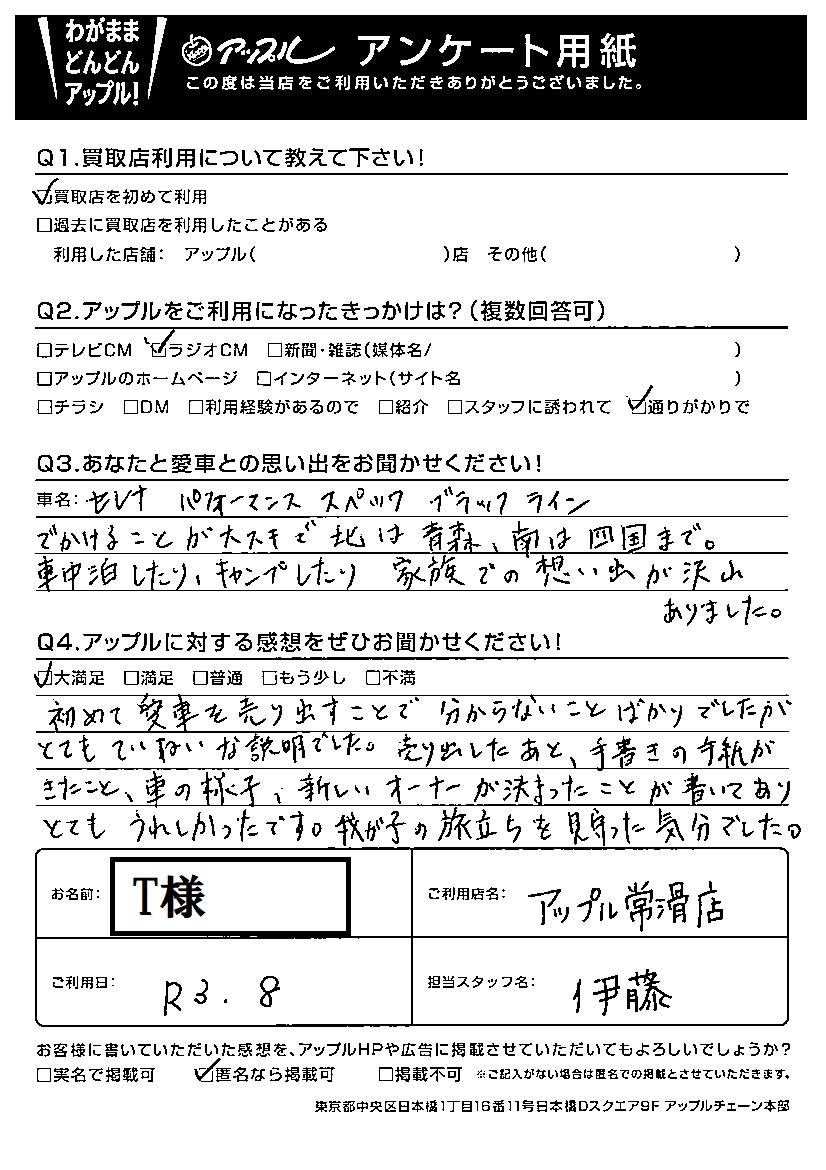 わがまま
どんどん
アップル!
アップル アンケート用紙
この度は当店をご利用いただきありがとうございました。
Q1.買取店利用について教えて下さい!
☑買取店を初めて利用
□過去に買取店を利用したことがある
利用した店舗: アップル( )店 その他( )
Q2.アップルをご利用になったきっかけは?(複数回答可)
□テレビCM ☑ラジオCM □新聞・雑誌(媒体名/ )
□アップルのホームページ □インターネット(サイト名 )
□チラシ □DM □利用経験があるので □紹介 □スタッフに誘われて ☑通りがかりで
Q3.あなたと愛車との思い出をお聞かせください!
車名: セレナ パフォーマンス スペック ブラック ライン
でかけることが大スキで 北は 青森、南は 四国まで。
車中泊したり、キャンプしたり 家族での想い出が沢山
ありました。
Q4.アップルに対する感想をぜひお聞かせください!
☑大満足 □満足 □普通 □もう少し □不満
初めて愛車を売り出すことで 分からないことばかりでしたが
とてもていねいな説明でした。売り出したあと、手書きの手紙が
きたこと、車の様子、新しいオーナーが決まったことが書いてあり
とても うれしかったです。我が子の旅立ちを見守った気分でした。
お名前: T様
ご利用店名: アップル常滑店
ご利用日: R3.8
担当スタッフ名: 伊藤
お客様に書いていただいた感想を、アップルHPや広告に掲載させていただいてもよろしいでしょうか?
□実名で掲載可 ☑匿名なら掲載可 □掲載不可 ※ご記入がない場合は匿名での掲載とさせていただきます。
東京都中央区日本橋1丁目16番11号日本橋Dスクエア9F アップルチェーン本部